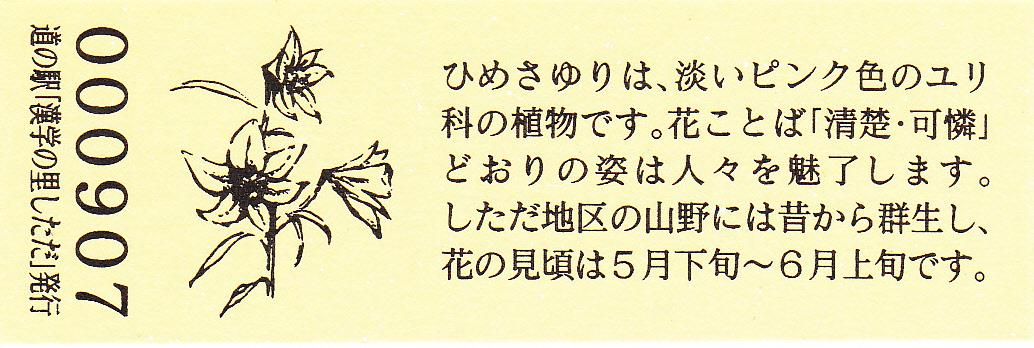 000907
道の駅「漢学の里しただ」発行
ひめさゆりは、淡いピンク色のユリ
科の植物です。花ことば「清楚・可憐」
どおりの姿は人々を魅了します。
しただ地区の山野には昔から群生し、
花の見頃は5月下旬～6月上旬です。